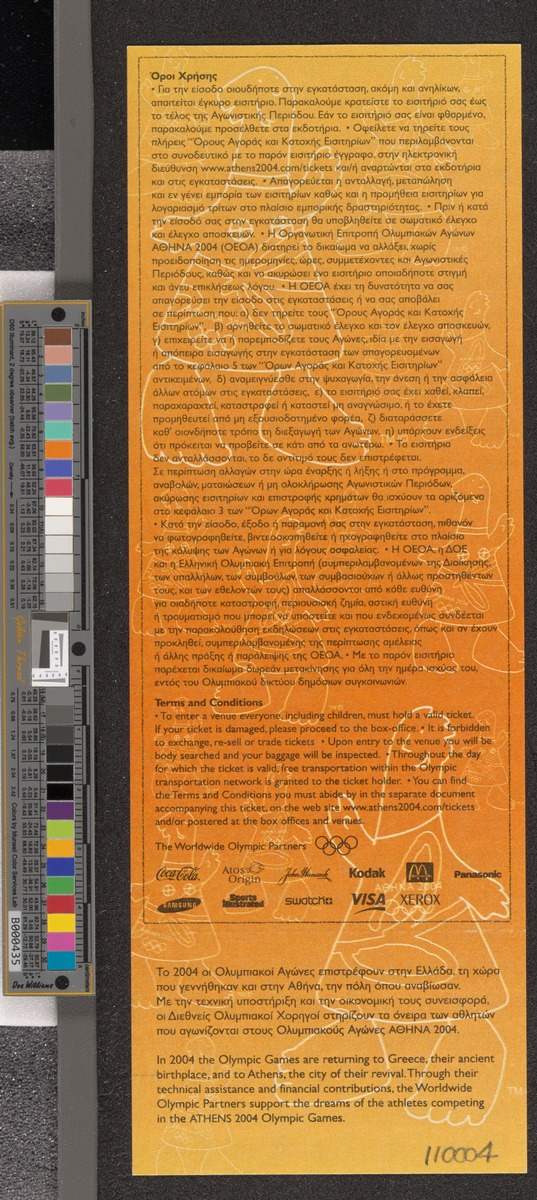 Όροι Χρήσης
• Για την είσοδο οιουδήποτε στην εγκατάσταση, ακόμη και ανηλίκων,
απαιτείται έγκυρο εισιτήριο. Παρακαλούμε κρατείστε το εισιτήριό σας έως
το τέλος της Αγωνιστικής Περιόδου. Εάν το εισιτήριό σας είναι φθαρμένο,
παρακαλούμε προσέλθετε στα εκδοτήρια. • Οφείλετε να τηρείτε τους
πλήρεις “Όρους Αγοράς και Κατοχής Εισιτηρίων” που περιλαμβάνονται
στο συνοδευτικό με το παρόν εισιτήριο έγγραφο, στην ηλεκτρονική
διεύθυνση www.athens2004.com/tickets και/ή αναρτώνται στα εκδοτήρια
και στις εγκαταστάσεις. • Απαγορεύεται η ανταλλαγή, μεταπώληση
και εν γένει εμπορία των εισιτηρίων καθώς και η προμήθεια εισιτηρίων για
λογαριασμό τρίτων στο πλαίσιο εμπορικής δραστηριότητας. • Πριν ή κατά
την είσοδό σας στην εγκατάσταση θα υποβληθείτε σε σωματικό έλεγχο
και έλεγχο αποσκευών. • Η Οργανωτική Επιτροπή Ολυμπιακών Αγώνων
ΑΘΗΝΑ 2004 (ΟΕΟΑ) διατηρεί το δικαίωμα να αλλάξει, χωρίς
προειδοποίηση τις ημερομηνίες, ώρες, συμμετέχοντες και Αγωνιστικές
Περιόδους, καθώς και να ακυρώσει ένα εισιτήριο οποιαδήποτε στιγμή
και άνευ επικλήσεως λόγου. • Η ΟΕΟΑ έχει τη δυνατότητα να σας
απαγορεύσει την είσοδο στις εγκαταστάσεις ή να σας αποβάλει
σε περίπτωση που: α) δεν τηρείτε τους “Όρους Αγοράς και Κατοχής
Εισιτηρίων”, β) αρνηθείτε το σωματικό έλεγχο και τον έλεγχο αποσκευών,
γ) επιχειρείτε να παρεμποδίζετε τους Αγώνες, ιδία με την εισαγωγή
ή απόπειρα εισαγωγής στην εγκατάσταση των απαγορευομένων
από το κεφάλαιο 5 των “Όρων Αγοράς και Κατοχής Εισιτηρίων”
αντικειμένων, δ) αναμειγνύεσθε στην ψυχαγωγία, την άνεση ή την ασφάλεια
άλλων ατόμων στις εγκαταστάσεις, ε) το εισιτήριό σας έχει χαθεί, κλαπεί,
παραχαραχτεί, καταστραφεί ή καταστεί μη αναγνώσιμο, ή το έχετε
προμηθευτεί από μη εξουσιοδοτημένο φορέα, ζ) διαταράσσετε
καθ’ οιονδήποτε τρόπο τη διεξαγωγή των Αγώνων, η) υπάρχουν ενδείξεις
ότι πρόκειται να προβείτε σε κάτι από τα ανωτέρω. • Τα εισιτήρια
δεν ανταλλάσσονται, το δε αντίτιμό τους δεν επιστρέφεται.
Σε περίπτωση αλλαγών στην ώρα έναρξης ή λήξης ή στο πρόγραμμα,
αναβολών, ματαιώσεων ή μη ολοκλήρωσης Αγωνιστικών Περιόδων,
ακύρωσης εισιτηρίων και επιστροφής χρημάτων θα ισχύουν τα οριζόμενα
στο κεφάλαιο 3 των “Όρων Αγοράς και Κατοχής Εισιτηρίων”.
• Κατά την είσοδο, έξοδο ή παραμονή σας στην εγκατάσταση, πιθανόν
να φωτογραφηθείτε, βιντεοσκοπηθείτε ή ηχογραφηθείτε στο πλαίσιο
της κάλυψης των Αγώνων ή για λόγους ασφαλείας. • Η ΟΕΟΑ, η ΔΟΕ
και η Ελληνική Ολυμπιακή Επιτροπή (συμπεριλαμβανομένων της Διοίκησης,
των υπαλλήλων, των συμβούλων, των συμβασιούχων ή άλλως προστηθέντων
τους, και των εθελοντών τους) απαλλάσσονται από κάθε ευθύνη
για οιαδήποτε καταστροφή, περιουσιακή ζημία, αστική ευθύνη
ή τραυματισμό που μπορεί να υποστείτε και που ενδεχομένως συνδέεται
με την παρακολούθηση εκδηλώσεων στις εγκαταστάσεις, όπως και αν έχουν
προκληθεί, συμπεριλαμβανομένης της περίπτωσης αμέλειας
ή άλλης πράξης ή παράλειψης της ΟΕΟΑ. • Με το παρόν εισιτήριο
παρέχεται δικαίωμα δωρεάν μετακίνησης για όλη την ημέρα ισχύος του,
εντός του Ολυμπιακού δικτύου δημόσιων συγκοινωνιών.
Terms and Conditions
• To enter a venue everyone, including children, must hold a valid ticket.
If your ticket is damaged, please proceed to the box-office. • It is forbidden
to exchange, re-sell or trade tickets • Upon entry to the venue you will be
body searched and your baggage will be inspected. • Throughout the day
for which the ticket is valid, free transportation within the Olympic
transportation network is granted to the ticket holder. • You can find
the Terms and Conditions you must abide by in the separate document
accompanying this ticket, on the web site www.athens2004.com/tickets
and/or posted at the box offices and venues.
The Worldwide Olympic Partners
Coca-Cola Atos Origin John Hancock Kodak M Panasonic
SAMSUNG Sports Illustrated swatch VISA XEROX
ΑΘΗΝΑ 2004
Το 2004 οι Ολυμπιακοί Αγώνες επιστρέφουν στην Ελλάδα, τη χώρα
που γεννήθηκαν και στην Αθήνα, την πόλη όπου αναβίωσαν.
Με την τεχνική υποστήριξη και την οικονομική τους συνεισφορά,
οι Διεθνείς Ολυμπιακοί Χορηγοί στηρίζουν τα όνειρα των αθλητών
που αγωνίζονται στους Ολυμπιακούς Αγώνες ΑΘΗΝΑ 2004.
In 2004 the Olympic Games are returning to Greece, their ancient
birthplace, and to Athens, the city of their revival. Through their
technical assistance and financial contributions, the Worldwide
Olympic Partners support the dreams of the athletes competing
in the ATHENS 2004 Olympic Games.
TM
110004
D50 Illuminant, 2 degree observer
Density
Golden Thread
Colors by Munsell Color Services Lab
B000435
Don Williams